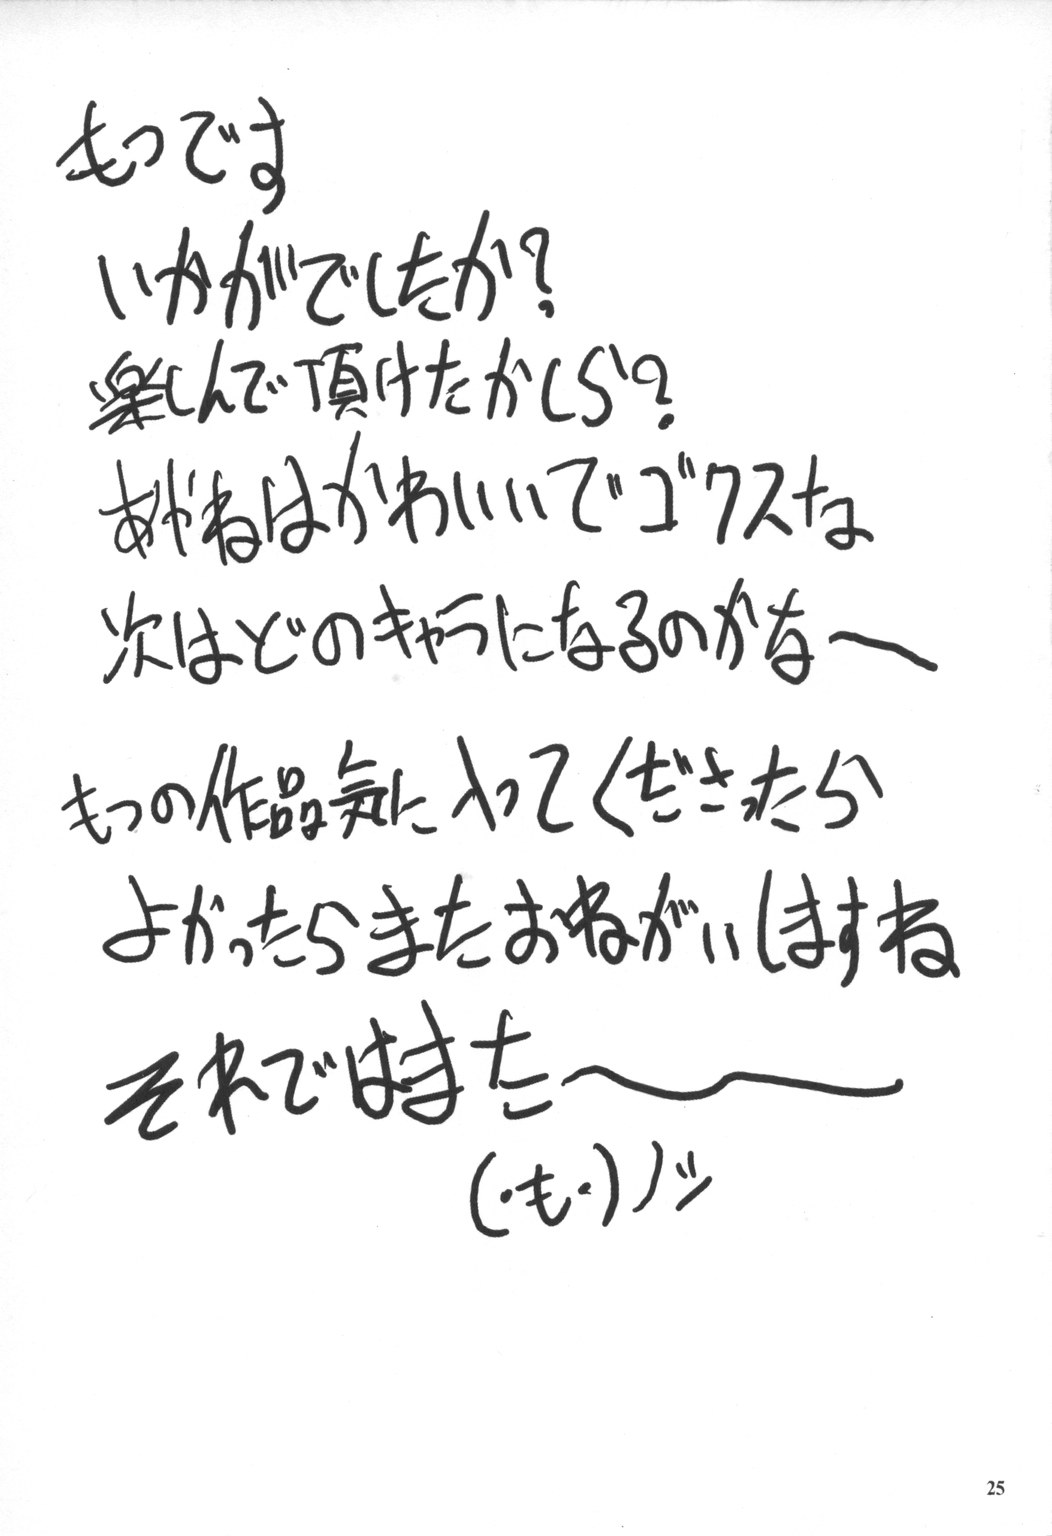 もつです
いかがでしたか?
楽しんで頂けたかしら?
あやねはかわいいでゴクスな
次はどのキャラになるのかな〜
もつの作品気に入ってくださったら
よかったらまたおねがいしますね
それではまた〜
(・も・)ノシ
25